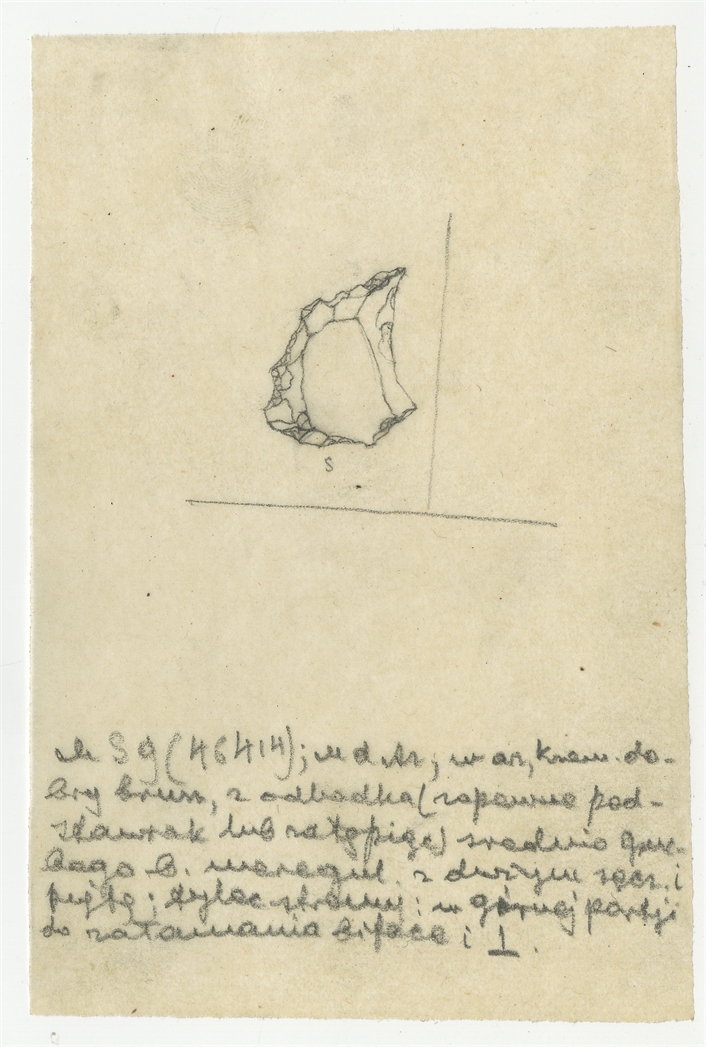 S
S 9 (46414); M d Az; w az, krzem. do-
bry brun, z odbadka (zapewne pod-
stawiak lub zatępige) średnio gru-
bago b. nieregul. z dużym sęcz. i
piętą; tylec stromy; w górnej partji
do załamania biface i ⊥.